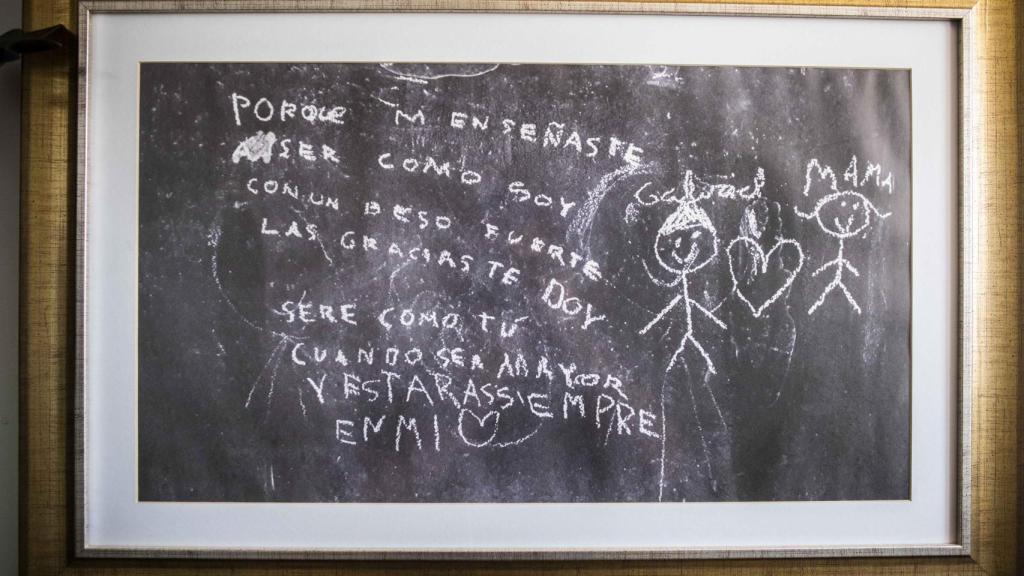 PORQUE M ENSEÑASTE
A SER COMO SOY
CON UN BESO FUERTE
LAS GRACIAS TE DOY
SERE COMO TU
CUANDO SEA MAYOR
Y ESTARAS SIEMPRE
EN MI
Gabriel
MAMA